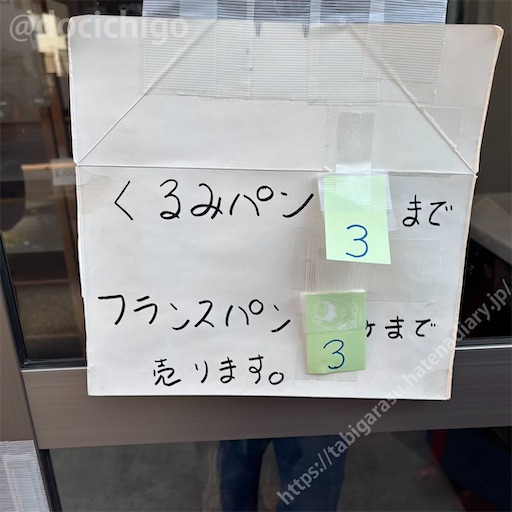 @docichigo
くるみパン 3 まで
フランスパン 3 ケまで
売ります。
https://tabigarasu.hatenadiary.jp/